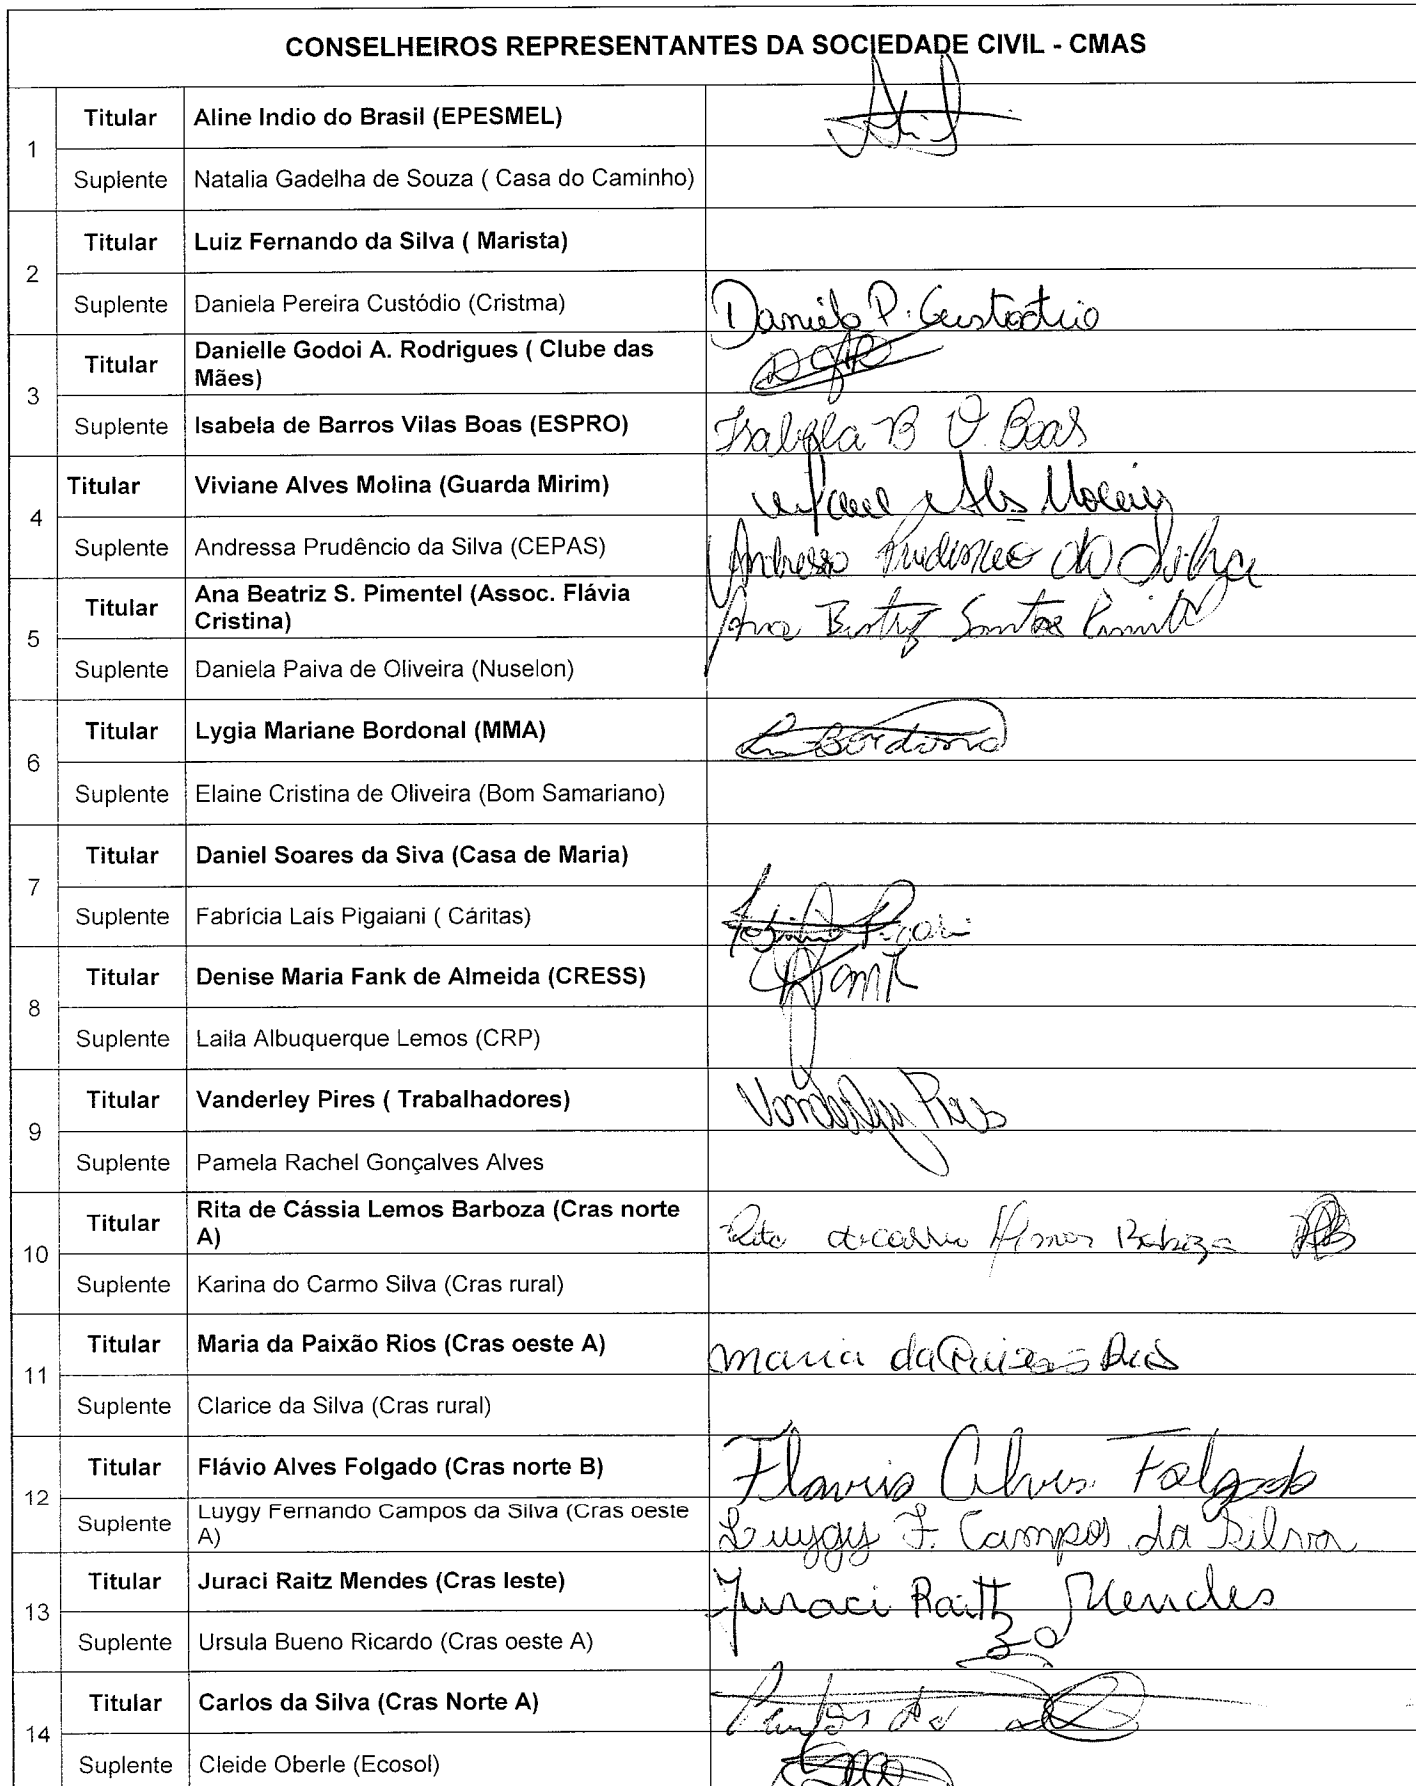 CONSELHEIROS REPRESENTANTES DA SOCIEDADE CIVIL - CMAS
1
Titular Aline Indio do Brasil (EPESMEL)
Suplente Natalia Gadelha de Souza ( Casa do Caminho)
2
Titular Luiz Fernando da Silva ( Marista)
Suplente Daniela Pereira Custódio (Cristma) Daniela P. Custodio
3
Titular Danielle Godoi A. Rodrigues ( Clube das
Mães)
Suplente Isabela de Barros Vilas Boas (ESPRO) Isabela B V. Boas
4
Titular Viviane Alves Molina (Guarda Mirim)
Suplente Andressa Prudêncio da Silva (CEPAS) Andressa Prudencio da Silva
5
Titular Ana Beatriz S. Pimentel (Assoc. Flávia
Cristina) Ana Beatriz Santos Pimentel
Suplente Daniela Paiva de Oliveira (Nuselon)
6
Titular Lygia Mariane Bordonal (MMA) Bordonal
Suplente Elaine Cristina de Oliveira (Bom Samariano)
7
Titular Daniel Soares da Siva (Casa de Maria)
Suplente Fabrícia Laís Pigaiani ( Cáritas)
8
Titular Denise Maria Fank de Almeida (CRESS)
Suplente Laila Albuquerque Lemos (CRP)
9
Titular Vanderley Pires ( Trabalhadores) Vanderley Pires
Suplente Pamela Rachel Gonçalves Alves
10
Titular Rita de Cássia Lemos Barboza (Cras norte
A) Rita de cassia Lemos Barboza
Suplente Karina do Carmo Silva (Cras rural)
11
Titular Maria da Paixão Rios (Cras oeste A) maria da Paixão Rios
Suplente Clarice da Silva (Cras rural)
12
Titular Flávio Alves Folgado (Cras norte B) Flavio Alves Folgado
Suplente Luygy Fernando Campos da Silva (Cras oeste
A) Luygy F. Campos da Silva
13
Titular Juraci Raitz Mendes (Cras leste) Juraci Raitz Mendes
Suplente Ursula Bueno Ricardo (Cras oeste A)
14
Titular Carlos da Silva (Cras Norte A) Carlos da
Suplente Cleide Oberle (Ecosol)